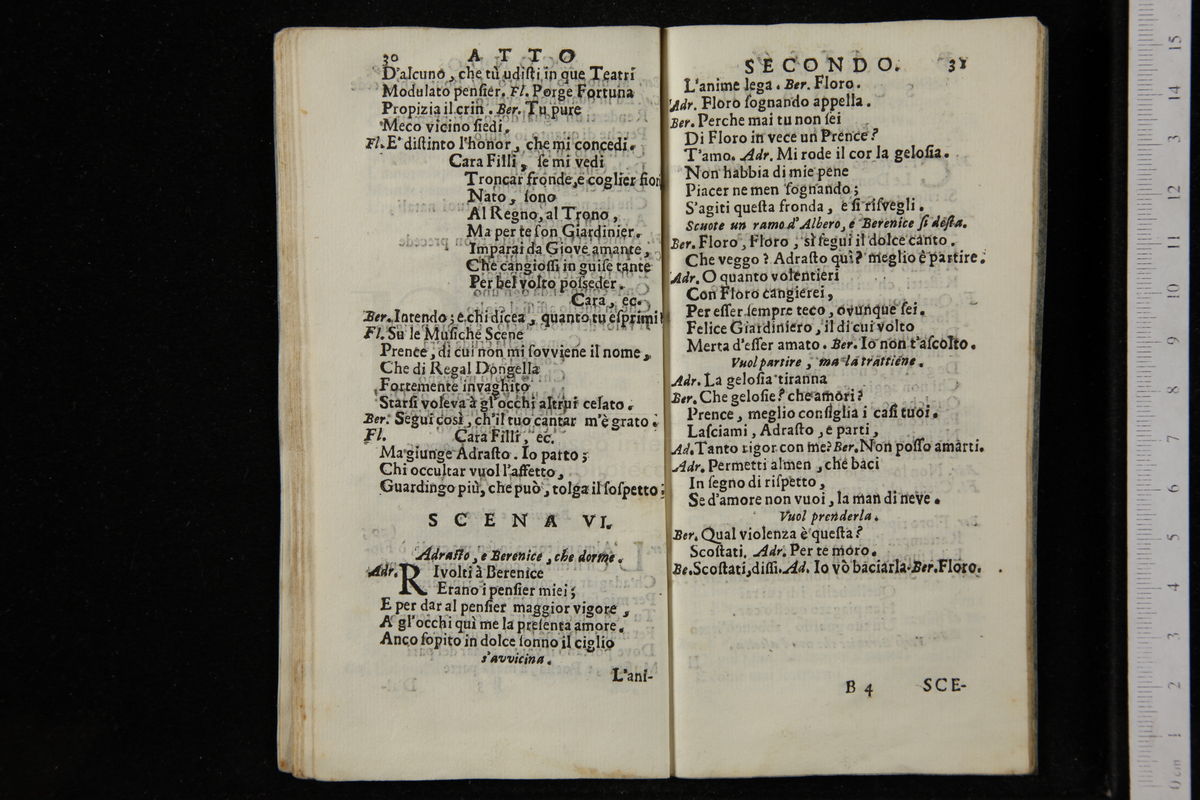 30 ATTO
D'alcuno, che tù udiſti in que Teatri
Modulato penſier. Fl. Porge Fortuna
Propizia il crin. Ber. Tu pure
Meco vicino ſiedi.
Fl. E' diſtinto l'honor, che mi concedi.
Cara Filli, ſe mi vedi
Troncar fronde, e coglier fior
Nato, ſono
Al Regno, al Trono,
Ma per te ſon Giardinier.
Imparai da Giove amante,
Che cangioſſi in guiſe tante
Per bel volto poſſeder.
Cara, ec.
Ber. Intendo; e chi dicea, quanto tu eſprimi?
Fl. Su le Muſiche Scene
Prence, di cui non mi ſovviene il nome,
Che di Regal Donzella
Fortemente invaghito
Starſi voleva à gl'occhi altrui celato.
Ber. Segui così, ch'il tuo cantar m'è grato.
Fl. Cara Filli, ec.
Ma giunge Adraſto. Io parto;
Chi occultar vuol l'affetto,
Guardingo più, che può, tolga il ſoſpetto;
SCENA VI.
Adraſto, e Berenice, che dorme.
Adr. RIvolti à Berenice
Erano i penſier miei;
E per dar al penſier maggior vigore,
A' gl'occhi quì me la preſenta amore.
Anco ſopito in dolce ſonno il ciglio
s'avvicina.
L'ani-
SECONDO. 31
L'anime lega. Ber. Floro.
Adr. Floro ſognando appella.
Ber. Perche mai tu non ſei
Di Floro in vece un Prence?
T'amo. Adr. Mi rode il cor la geloſia.
Non habbia di mie pene
Piacer ne men ſognando;
S'agiti queſta fronda, e ſi riſvegli.
Scuote un ramo d'Albero, e Berenice ſi deſta.
Ber. Floro, Floro, sì ſegui il dolce canto.
Che veggo? Adraſto quì? meglio è partire.
Adr. O quanto volentieri
Con Floro cangierei,
Per eſſer ſempre teco, ovunque ſei.
Felice Giardiniero, il di cui volto
Merta d'eſſer amato. Ber. Io non t'aſcolto.
Vuol partire, ma la trattiene.
Adr. La geloſia tiranna
Ber. Che geloſie? che amori?
Prence, meglio conſiglia i caſi tuoi.
Laſciami, Adraſto, e parti,
Ad. Tanto rigor con me? Ber. Non poſſo amarti.
Adr. Permetti almen, che baci
In ſegno di riſpetto,
Se d'amore non vuoi, la man di neve.
Vuol prenderla.
Ber. Qual violenza è queſta?
Scoſtati. Adr. Per te moro.
Be. Scoſtati, diſſi. Ad. Io vò baciarla. Ber. Floro.
B 4 SCE-
15
14
13
12
11
10
9
8
7
6
5
4
3
2
1
0 cm